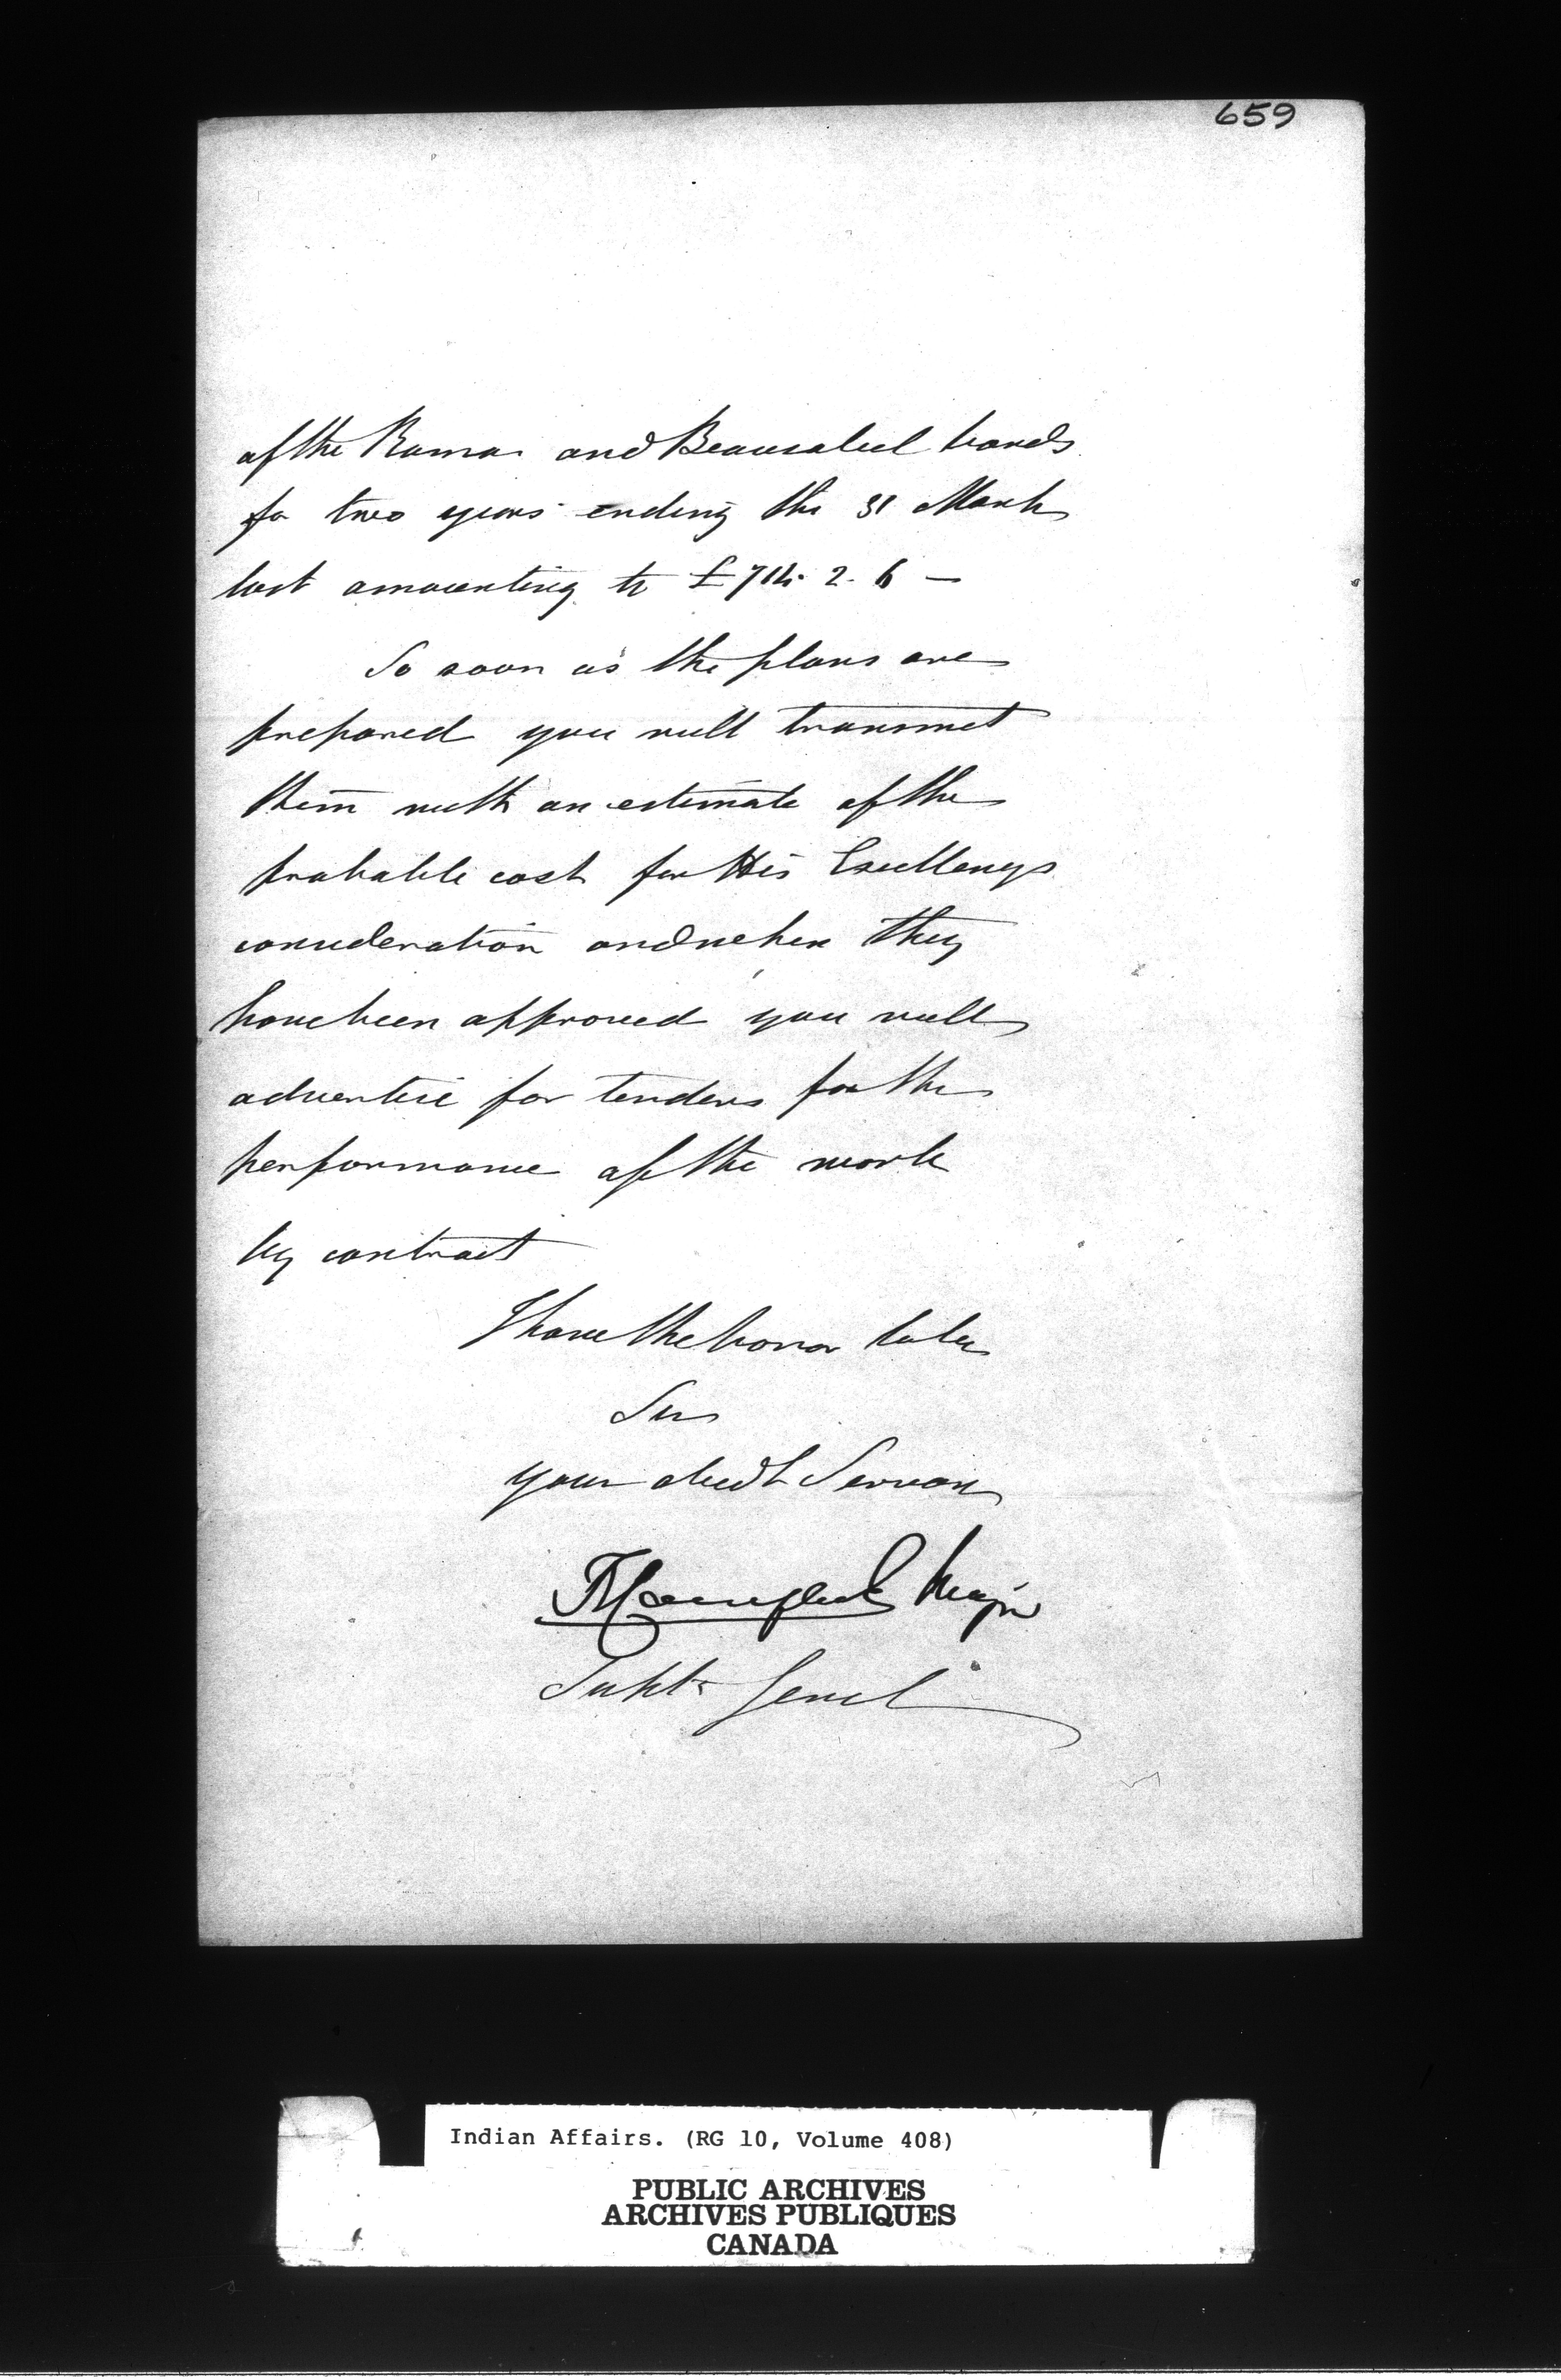 659
of the Rama and Beausoleil bands
for two years ending the 31 March
last amounting to £714. 2. 6 —
So soon as the plans are
prepared you will transmit
them with an estimate of the
probable cost for His Excellencys
consideration and when they
have been approved you will
advertise for tenders for the
performance of the work
by contract
I have the honor to be
Sir
your obedt Servant
Major
Supt. Genel
Indian Affairs. (RG 10, Volume 408)
PUBLIC ARCHIVES
ARCHIVES PUBLIQUES
CANADA